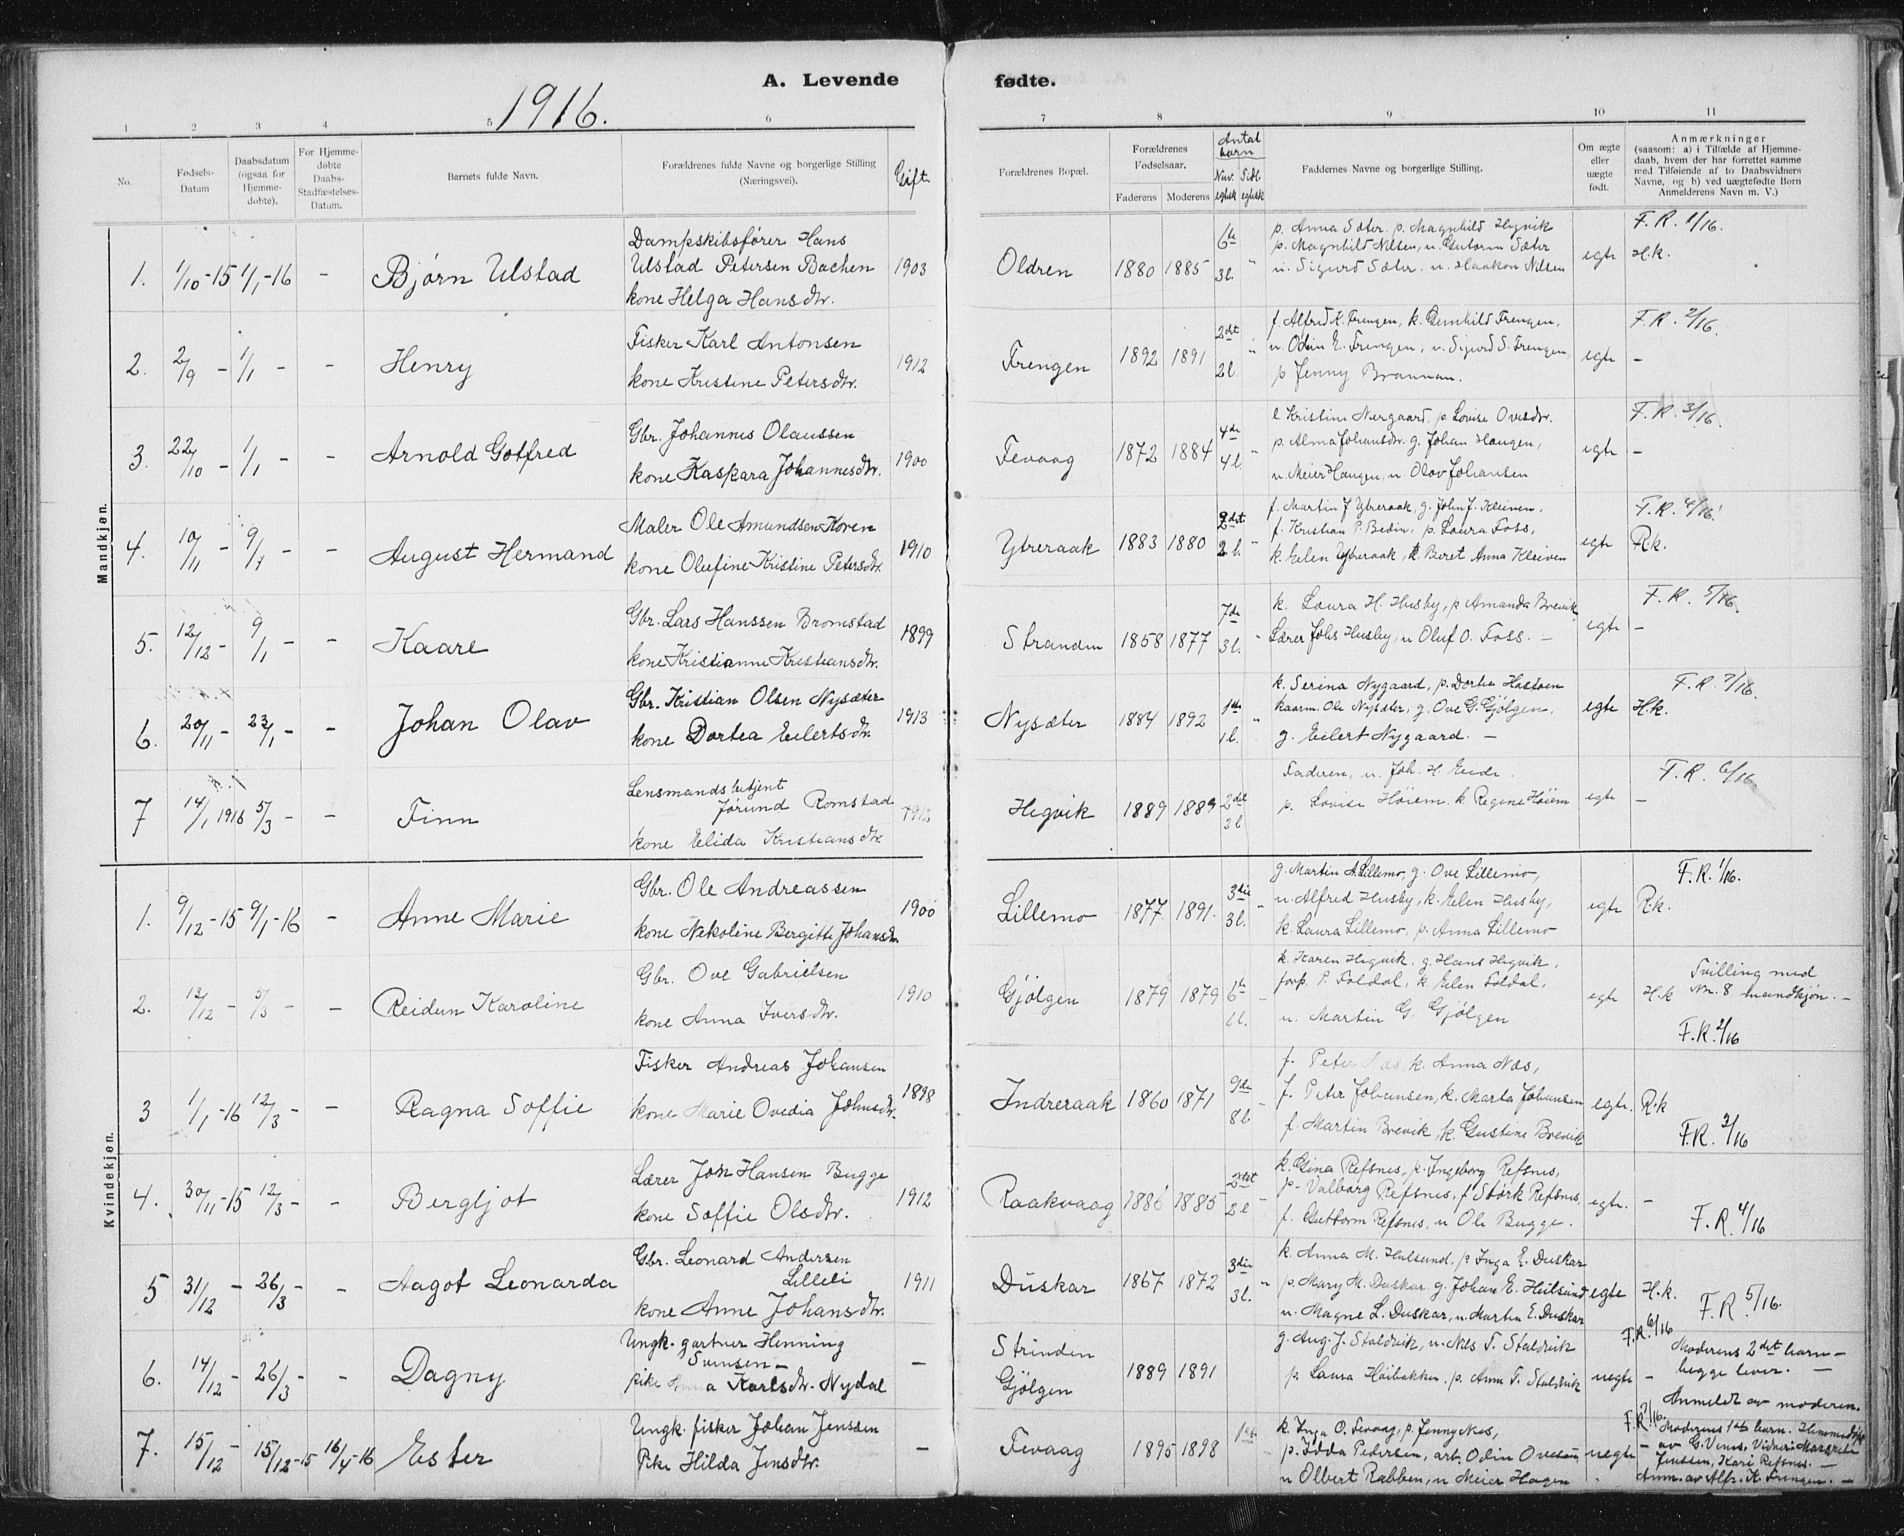 A. Levende fødte.
1916.
1 2 3 4 5 6 7 8 9 10 11
No.
Fødsels-Datum
Daabsdatum (ogsaa for Hjemme-døbte).
For Hjemme-døbte Daabs-Stadfæstelses-Datum.
Barnets fulde Navn.
Forældrenes fulde Navne og borgerlige Stilling (Næringsvei).
Gift
Forældrenes Bopæl.
Forældrenes Fødselsaar.
Faderens Moderens
Antal barn
Faddernes Navne og borgerlige Stilling.
Om ægte eller uægte født.
Anmærkninger
(saasom: a) i Tilfælde af Hjemme-
daab, hvem der har forrettet samme
med Tilføiende af to Daabsvidners
Navne, og b) ved uægtefødte Børn
Anmelderens Navn m. V.)
Mandkjøn.
1. 1/10-15 1/1-16 - Bjørn Ulstad
Dampskibsfører Hans
Ulstad Petersen Bachen
kone Helga Hansdtr.
1903 Oldren 1880 1885 6te 3l.
p. Anna Sæter. p. Magnhild Hegvik
p. Magnhild Nilsen, u. Guttorm Sæter
u. Sigurd Sæter. u. Haakon Nilsen
egte H.k. F.R. 1/16.
2. 2/9 - 1/1 - - Henry
Fisker Karl Antonsen
kone Kristine Petersdtr.
1912 Frengen 1892 1891 2det 2l.
f. Alfred K. Frengen, k. Gunhild Frengen,
u. Odin E. Frengen, u. Sigurd S. Frengen,
p Jenny Brannan.
egte - F.R. 2/16.
3. 22/10 - 1/1 - - Arnold Gotfred
Gbr. Johannes Olaussen
kone Kaspara Johannesdtr.
1900 Fevaag 1872 1884 4de 4l.
e Kristine Nergaard, p. Lovise Ovesdtr.
p. Alma Johansdtr. g. Johan Haugen,
u. Meier Haugen, u Olav Johansen
egte - F.R. 3/16.
4. 10/11 - 9/1 - - August Hermand
Maler Ole Amundsen Koren
kone Olufine Kristine Petersdtr.
1910 Ytreraak 1883 1880 2det 2l.
f. Martin J Ytreraak, g. John J. Kleiven,
f. Kristian P. Bedin, p. Laura Foss,
k. Elen Ytreraak, k. Beret Anna Kleiven
egte R.k. F.R. 4/16.
5. 12/12 - 9/1 - - Kaare
Gbr. Lars Hanssen Bromstad
kone Kristianne Kristiansdtr.
1899 Stranden 1858 1877 7de 3l.
k. Laura H. Husby, p Amanda Brevik
Lærer Johs Husby, u Oluf O. Foss. -
egte - F.R. 5/16.
6. 20/11 - 23/1 - - Johan Olav
Gbr. Kristian Olsen Nysæter
kone Dortea Eilertsdtr.
1913 Nysæter 1884 1892 1ste 1l.
k. Serina Nygaard, p. Dortea Hastoen
kaarm. Ole Nysæter, g. Ove G. Gjølgen,
g. Eilert Nygaard. -
egte H.k. F.R. 7/16.
7 14/1 1916 5/3 - - Finn
Lensmandsbetjent
Jørund Romstad
kone Elida Kristiansdtr.
Hegvik 1889 1889 2det 3l
Faderen, u. Joh. H. Eide.
p. Lovise Høiem. k Regine Høiem
egte - F.R. 6/16
Kvindekjøn.
1. 9/12-15 9/1-16 - Anne Marie
Gbr. Ole Andreassen
kone Nekoline Bergitte Johansdtr
1900 Lillemo 1877 1891. 3die 3l.
g. Martin A. Lillemo, g. Ove Lillemo,
u. Alfred Husby, k. Elen Husby,
k. Laura Lillemo, p. Anna Lillemo
egte R.k. F.R. 1/16.
2. 12/12 - 5/3 - - Reidun Karoline
Gbr. Ove Gabrielsen
kone Anna Iversdtr.
1910 Gjölgen 1879 1879 6te
k. Karen Hegvik, g. Hans Hegvik,
forp. P. Foldal, k Elen Foldal,
u. Martin G. Gjölgen
egte H.k Tvilling med
Nr. 8 mandkjøn. -
F.R. 2/16
3 1/1-16 12/3 - - Ragna Soffie
Fisker Andreas Johansen
kone Marie Ovedia Johnsdtr.
1898 Indreraak 1860 1871 9de 8l
f. Peter Næs k. Anna Næs,
f. Peter Johansen, k. Marta Johansen
f. Martin Brevik, k. Gustine Brevik
egte. R.k F.R. 3/16
4. 30/11-15 12/3 - - Bergljot
Lærer Jon Hansen Bugge
kone Soffie Olsdtr.
1912 Raakvaag 1886 1885 2det 2l
k. Gina Refsnes, p. Ingeborg Refsnes,
p. Valborg Refsnes, f Størk Refsnes,
f. Guttorm Refsnes, u Ole Bugge.
egte. - F.R. 4/16
5 31/12 - 26/3 - - Aagot Leonarda
Gbr. Leonard Andersen
Lilleli
kone Anne Johansdtr.
1911 Duskar 1867 1872 3die 3l.
k. Anna M. Hulsund, p. Inga E. Duskar
p. Mary M. Duskar, g. Johan E. Hulsund
u. Magne L. Duskar, u. Martin E. Duskar
egte H.k. F.R. 5/16.
6. 14/12 - 26/3 - - Dagny
Ungk. gartner Henning
Svensen -
pike Anna Karlsdtr. Nydal
- Strinden
Gjölgen 1889 1891
g. Aug. J. Staldvik, u. Nils T. Staldvik
p. Laura Høibakken, p. Anna T. Staldvik
uegte - F.R. 6/16 Moderens 2det barn -
begge lever. -
Anmeldt av moderen.
7. 15/12 - 15/12-15 16/4-16 Ester
Ungk. fisker Johan Jenssen
Pike Hilda Jensdtr.
- Fevaag 1895 1898 1ste
k. Inga O. Fevaag, p. Jenny Næs,
p. Edda Pedersen, arb. Odin Ovesen
u Olbert Rabben, u Meier Hagen
uegte F.R. 7/16. Moderens 1ste barn. Hjemmedøbt
- av G. Venes. Vidner: Margrete
Jenssen, Kari Refsnes. -
Anm. av Alfr. K. Frengen. -